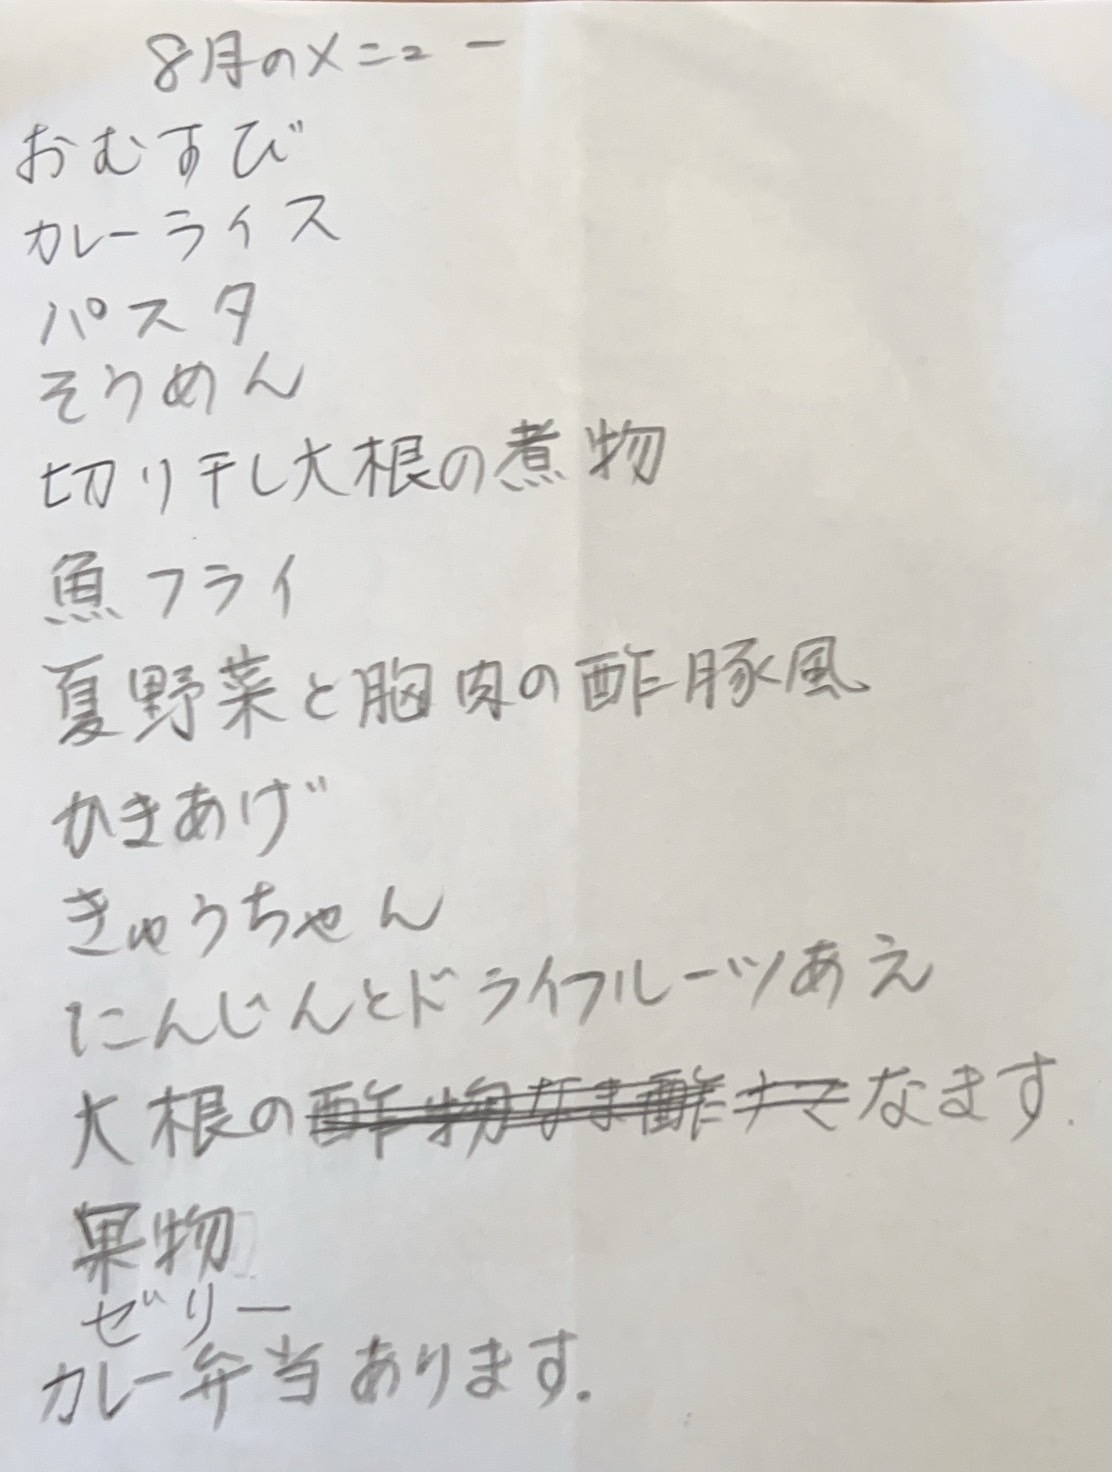 8月のメニュー
おむすび
カレーライス
パスタ
そうめん
切り干し大根の煮物
魚フライ
夏野菜と胸肉の酢豚風
かきあげ
きゅうちゃん
にんじんとドライフルーツあえ
大根の酢物なま酢ナマなます.
果物
ゼリー
カレー弁当あります.